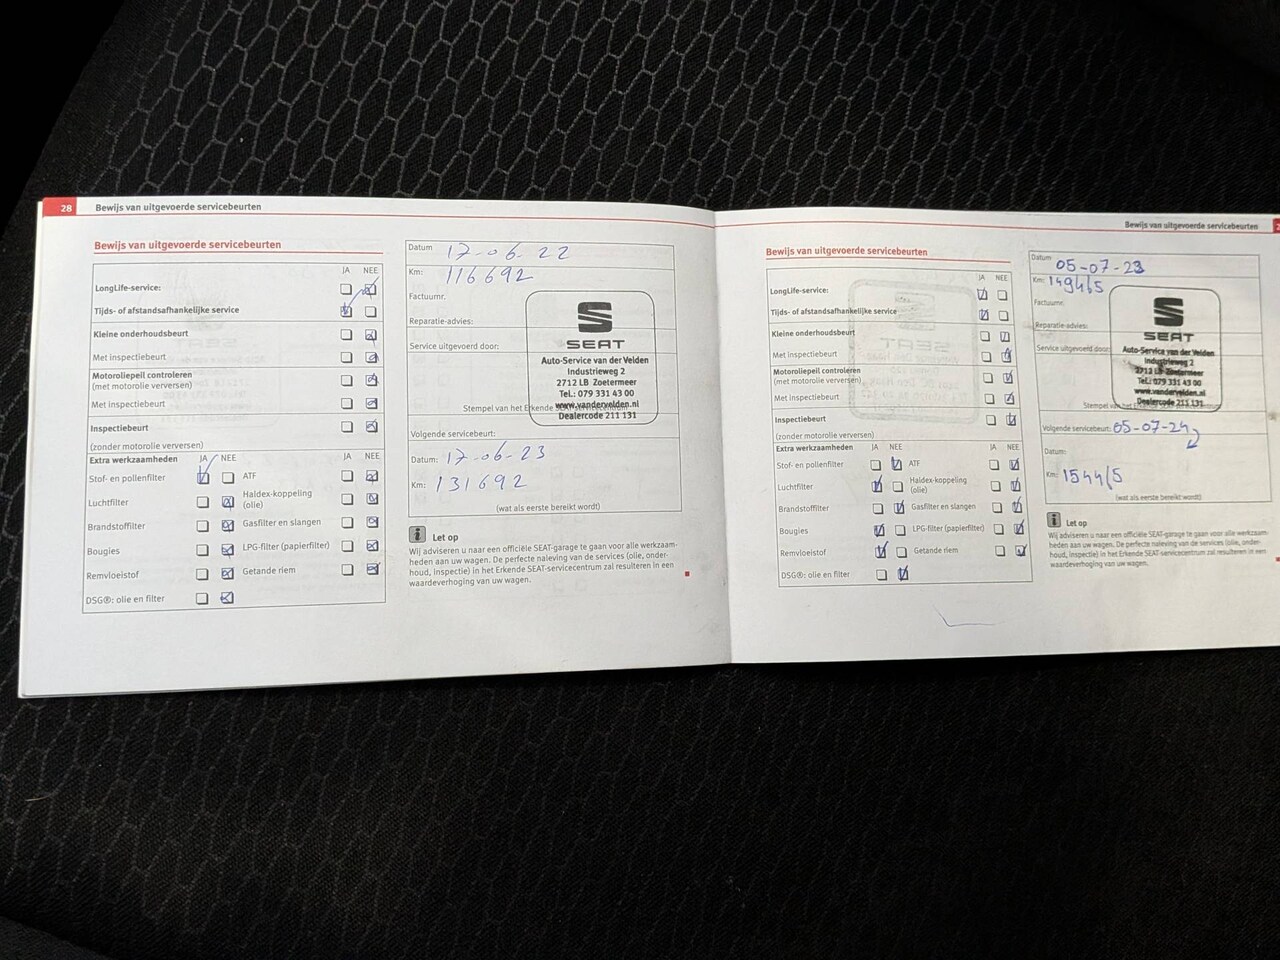 28 Bewijs van uitgevoerde servicebeurten
Bewijs van uitgevoerde servicebeurten
JA NEE
LongLife-service:
Tijds- of afstandsafhankelijke service
Kleine onderhoudsbeurt
Met inspectiebeurt
Motoroliepeil controleren
(met motorolie verversen)
Met inspectiebeurt
Inspectiebeurt
(zonder motorolie verversen)
Extra werkzaamheden JA NEE JA NEE
Stof- en pollenfilter ATF
Luchtfilter Haldex-koppeling
(olie)
Brandstoffilter Gasfilter en slangen
Bougies LPG-filter (papierfilter)
Remvloeistof Getande riem
DSG®: olie en filter
Datum 17-06-22
Km: 116692
Factuurnr.
Reparatie-advies:
Service uitgevoerd door:
SEAT
Auto-Service van der Velden
Industrieweg 2
2712 LB Zoetermeer
Tel.: 079 331 43 00
www.vandervelden.nl
Stempel van het Erkende SEAT-servicecentrum
Dealercode 211 131
Volgende servicebeurt:
Datum: 17-06-23
Km: 131692
(wat als eerste bereikt wordt)
i Let op
Wij adviseren u naar een officiële SEAT-garage te gaan voor alle werkzaam-
heden aan uw wagen. De perfecte naleving van de services (olie, onder-
houd, inspectie) in het Erkende SEAT-servicecentrum zal resulteren in een
waardeverhoging van uw wagen.
Bewijs van uitgevoerde servicebeurten
Bewijs van uitgevoerde servicebeurten
JA NEE
LongLife-service:
Tijds- of afstandsafhankelijke service
Kleine onderhoudsbeurt
Met inspectiebeurt
Motoroliepeil controleren
(met motorolie verversen)
Met inspectiebeurt
Inspectiebeurt
(zonder motorolie verversen)
Extra werkzaamheden JA NEE JA NEE
Stof- en pollenfilter ATF
Luchtfilter Haldex-koppeling
(olie)
Brandstoffilter Gasfilter en slangen
Bougies LPG-filter (papierfilter)
Remvloeistof Getande riem
DSG®: olie en filter
Datum 05-07-23
Km:
Factuurnr.
Reparatie-advies:
Service uitgevoerd door:
SEAT
Auto-Service van der Velden
Industrieweg 2
2712 LB Zoetermeer
Tel.: 079 331 43 00
www.vandervelden.nl
Dealercode 211 131
Volgende servicebeurt: 05-07-24
Datum:
Km:
(wat als eerste bereikt wordt)
i Let op
Wij adviseren u naar een officiële SEAT-garage te gaan voor alle werkzaam-
heden aan uw wagen. De perfecte naleving van de services (olie, onder-
houd, inspectie) in het Erkende SEAT-servicecentrum zal resulteren in een
waardeverhoging van uw wagen.